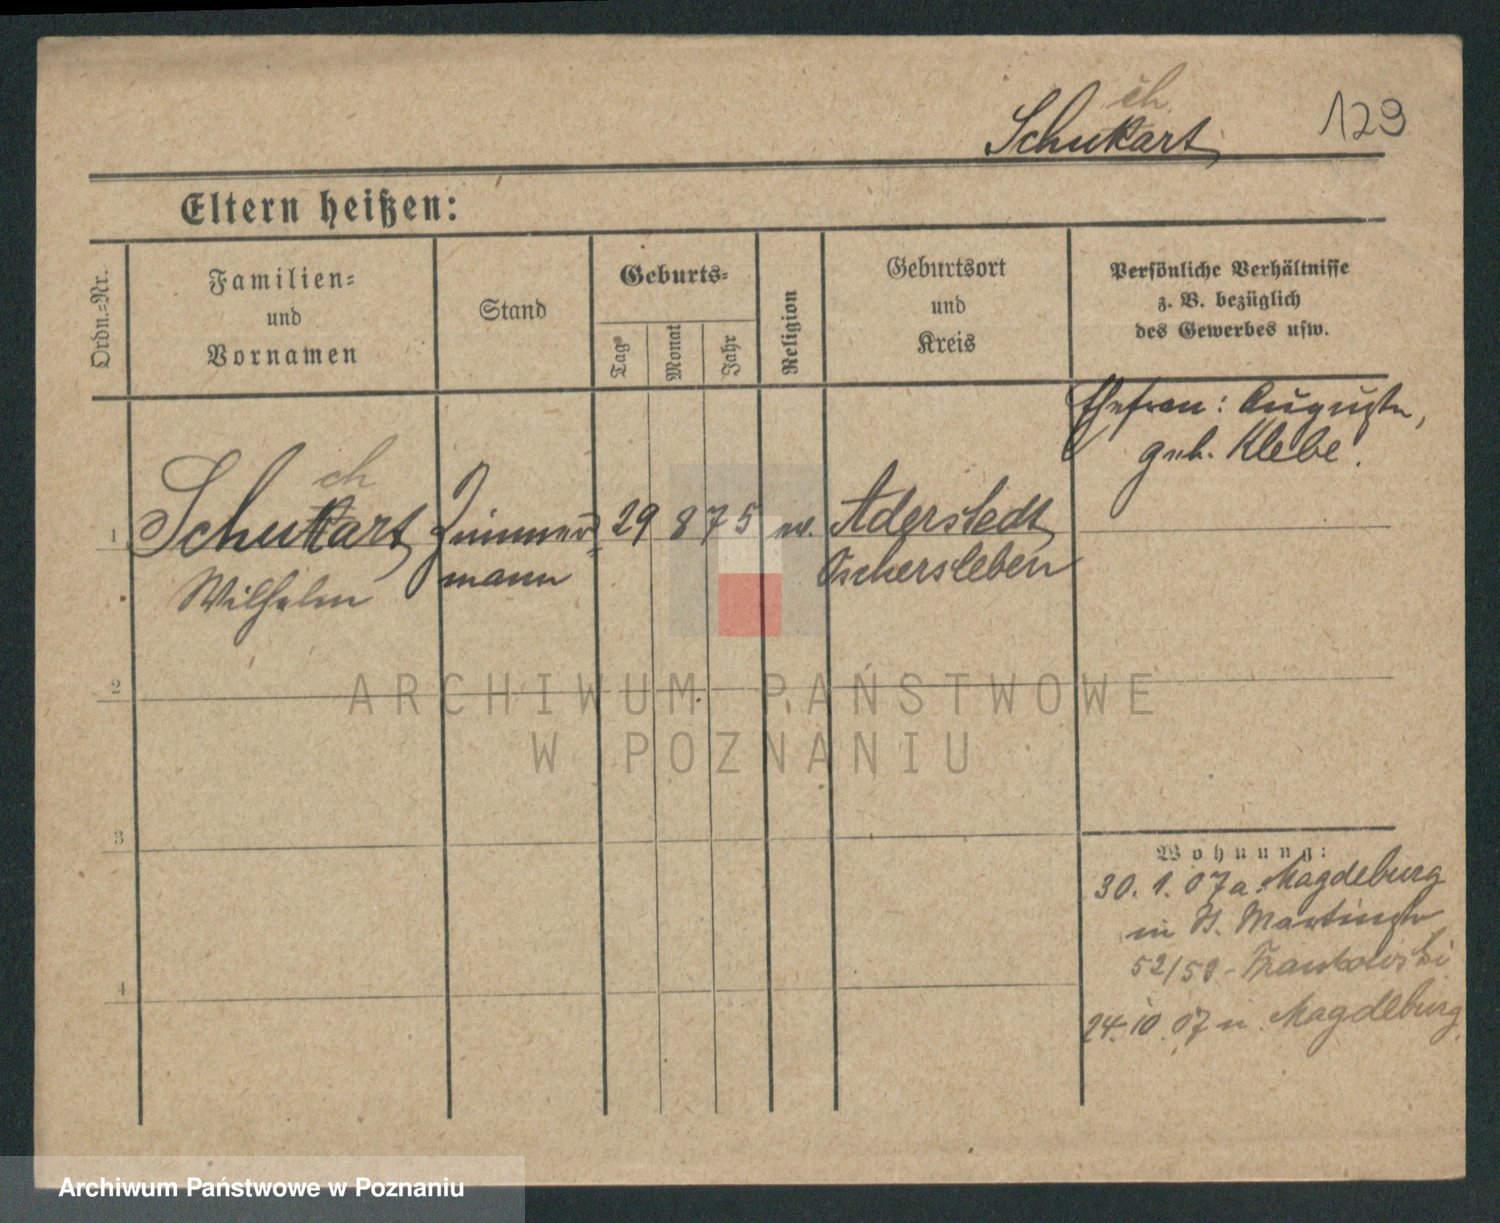 ch
Schukart
129
Eltern heißen:
Ordn.-Nr.
Familien-
und
Vornamen
Stand
Geburts-
Tag
Monat
Jahr
Religion
Geburtsort
und
Kreis
Persönliche Verhältnisse
z. B. bezüglich
des Gewerbes usw.
Ehefrau: Auguste,
geb. Klebe.
ch
1 Schukart Zimmer- 29 8 75 ev. Aderstedt
Wilhelm mann Oschersleben
2
ARCHIWUM PAŃSTWOWE
W POZNANIU
3
Wohnung:
30. 1. 07 a. Magdeburg
in St. Martinstr
52/53 - Frankowski
4
24. 10. 07 n. Magdeburg
Archiwum Państwowe w Poznaniu